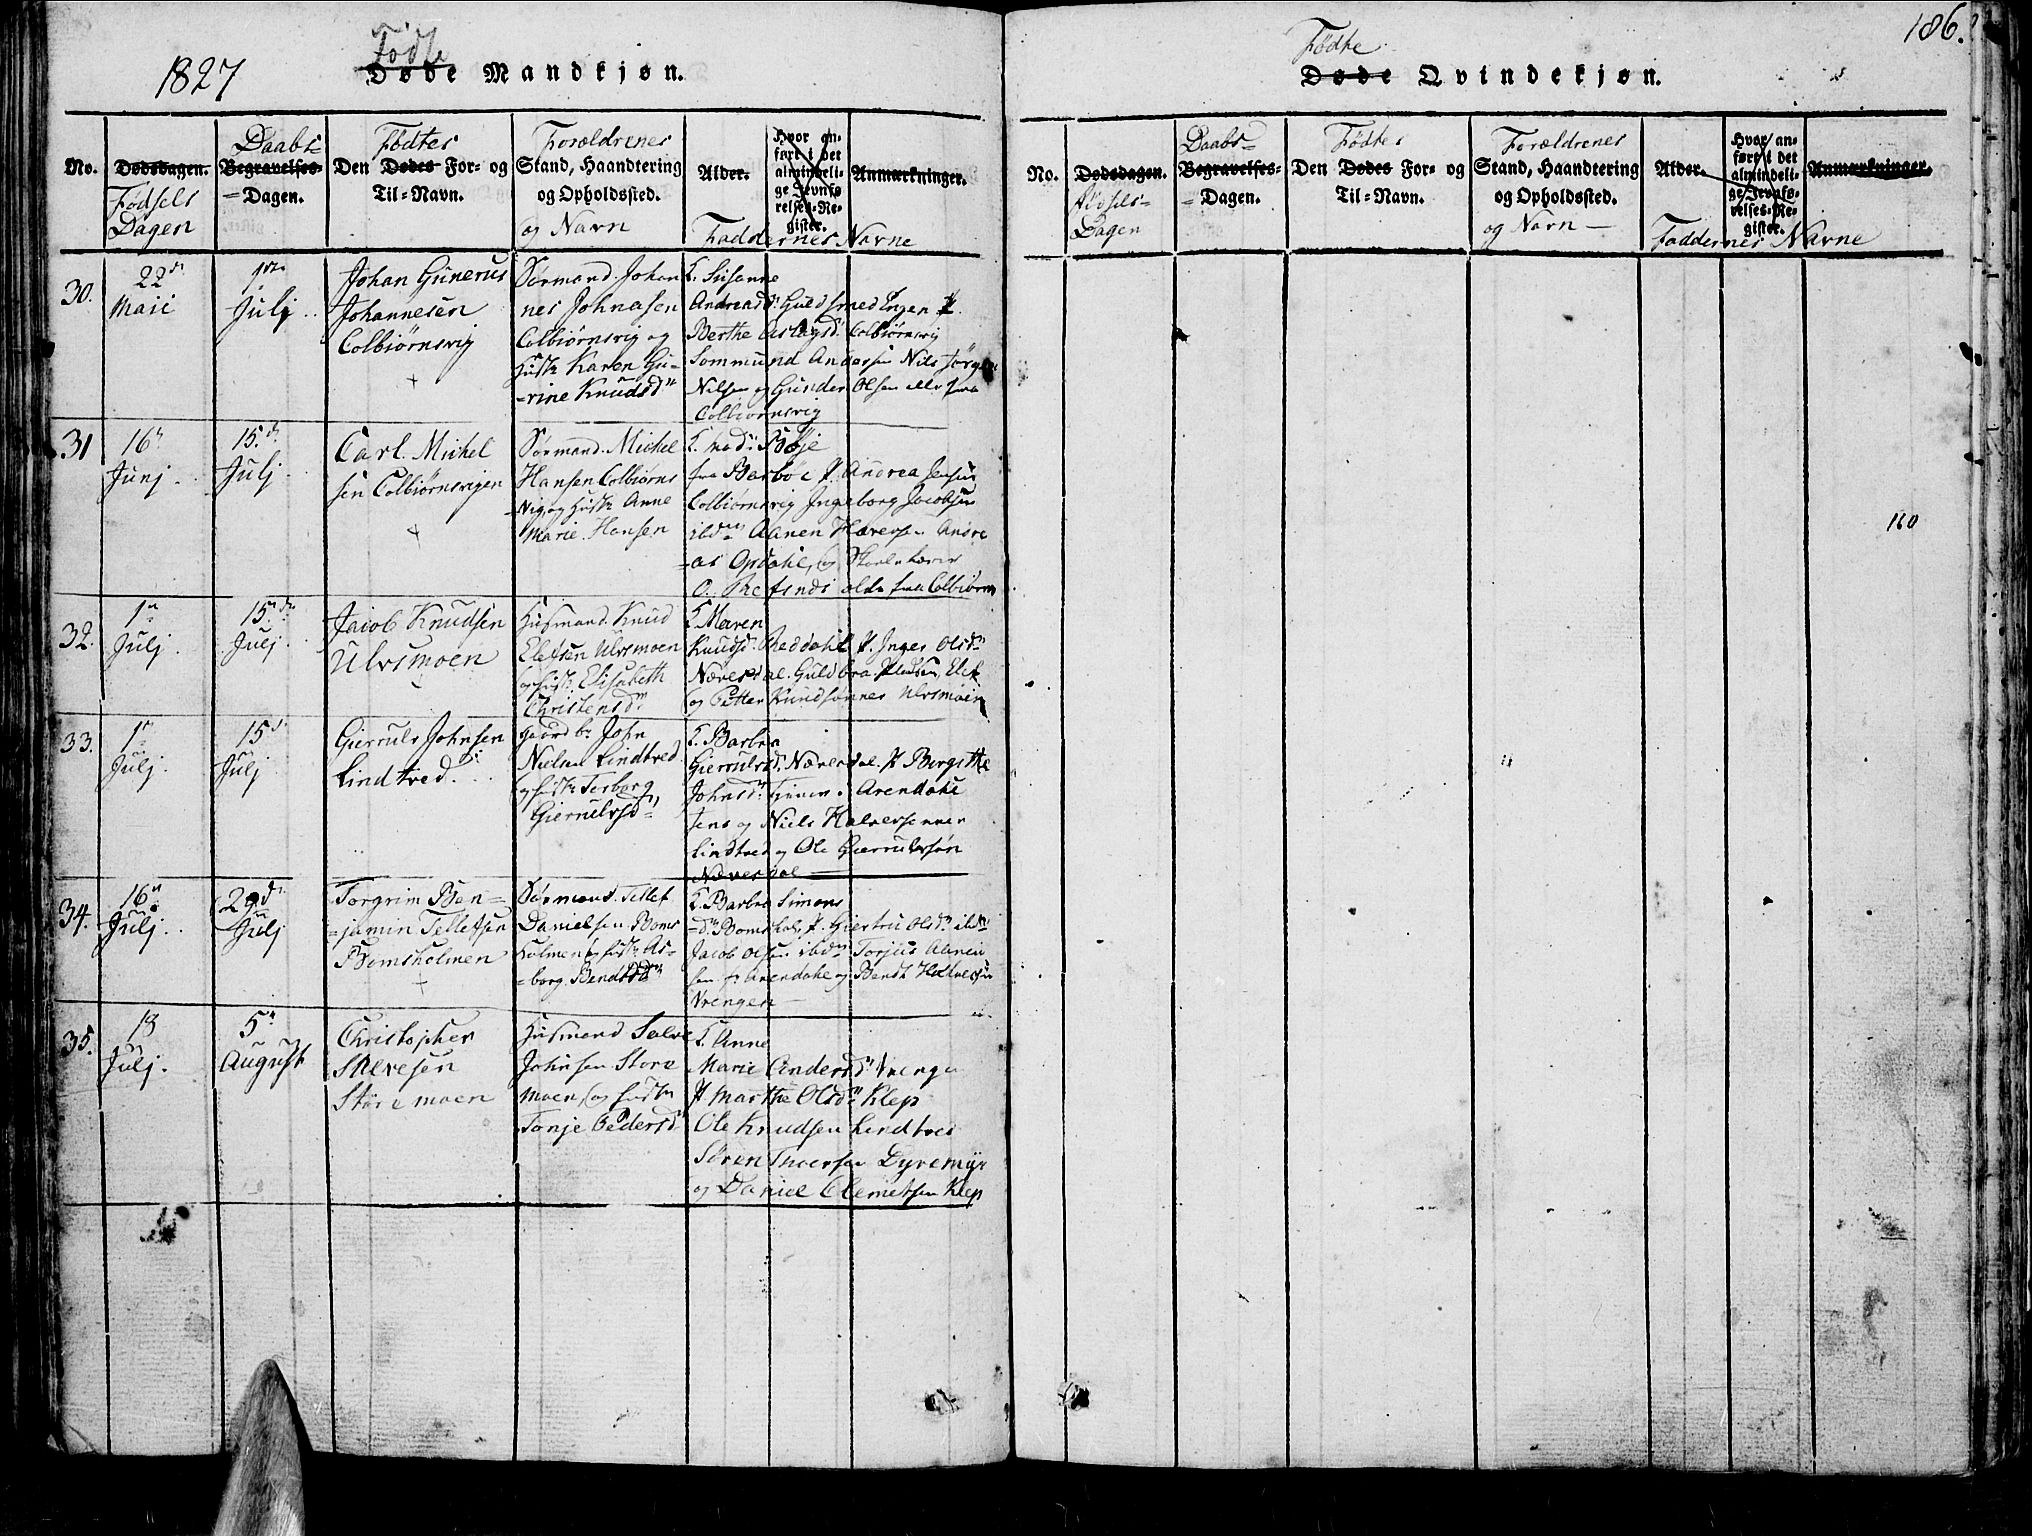 186.
1827
Fødte
Døde Mandkjøn.
No.
Dødsdagen.
Fødsels
Dagen
Daabs-
Begravelses-
=Dagen.
Fødtes
Den Dødes For- og
Til-Navn.
Forældrenes
Stand, Haandtering
og Opholdssted.
og Navn
Alder.
Hvor an-
ført i det
almindeli-
ge Jevnfø-
relses-Re-
gister.
Anmærkninger.
Faddernes Navne
30.
22dn
Maii
1ste
Julj
Johan Gunerus
Johannesen
Colbiørnsvig
+
Sørmand. Johan
nes Johnasen
Colbiørnsvig og
Hustr. Karen Gu-
-rine Knudsdn
F. Susanne
Andreasdn Guldsmed Engen
Berthe Aslagsdn Colbiørnsvig
Sommund Andersen Nils Jørgen
Nilsen og Gunder Olsen alle fra
Colbiørnsvig
31
16n
Junj.
15.dn
Julj.
Carl. Michel
sen Colbiørnsvigen
+
Sørmand. Michel
Hansen Colbiørns
-vig, og Hustr. Anne
Marie. Hansen
F. Mad: Bøje
fra Barboe P. Andrea Jensen
Colbiørnsvig Ingeborg Jacobsen
ibdm Aanen Halversen Andre
-as Opdahl, og Skoelelærer
O. Refsnes alle fra Colbiørn
32.
1n
Julj.
15.dn
Julj.
Jacob Knudsen
Ulvsmoen
Husmand. Knud
Elefsen Ulvsmoen
og Hustr. Elisabeth
Christensdn
F. Maren
Knudsdn Reddahl P. Inger Olsdn
Næversdal. Guldbra Elef
og Petter Knudsønner Ulvsmoen
33.
1n
Julj.
15dn
Julj
Gierruls Johnsen
Lindtved.
Gaardbr. John
Nielsen Lindtved
og Hustr. Torborg
Gierrulvsdn
F. Barbra
Gierrulvsdn Næversdal. P Birgithe
Johnsdn tjenen. Arendahl
Jens og Niels Halversenner
Lindtved og Ole Gierrulvsøn
Næversdal
34.
16n
Julj.
29dn
Julj
Torgrim Ben-
-jamin Tellefsen
Bomsholmen
+
Sørmand. Tellef
Danielsen Boms
holmen og Hustr. As-
-borg. Bendtsdn
F. Barbro Simons
-dn Bomshol, P. Giertru Olsdn ibdm
Jacob Olsen ibdm Torjus Aanen
sen p. Arendahl og Bendt Halvorsen
Vrengen
35.
13
Julj.
5n
August
Christopher
Salvesen
Støremoen
Husmand Salve
Johnsen Store
moen, og Hustr.
Tonje Pedersdn
F. Anne
Marie Andersdn Vrenge
P Marthe Olsdn Klep
Ole Knudsen Lindtved
Søren Thoersen Dyremyr
og Daniel Clemetsen Klep
Fødte
Døde Qvindekjøn.
No.
Dødsdagen.
Fødsels-
Dagen
Daabs-
Begravelses-
=Dagen.
Fødtes
Den Dødes For- og
Til-Navn.
Forældrenes
Stand, Haandtering
og Opholdssted.
og Navn
Alder.
Hvor an-
ført i det
almindeli-
ge Jevnfø-
relses-Re-
gister.
Anmærkninger.
Faddernes Navne
160